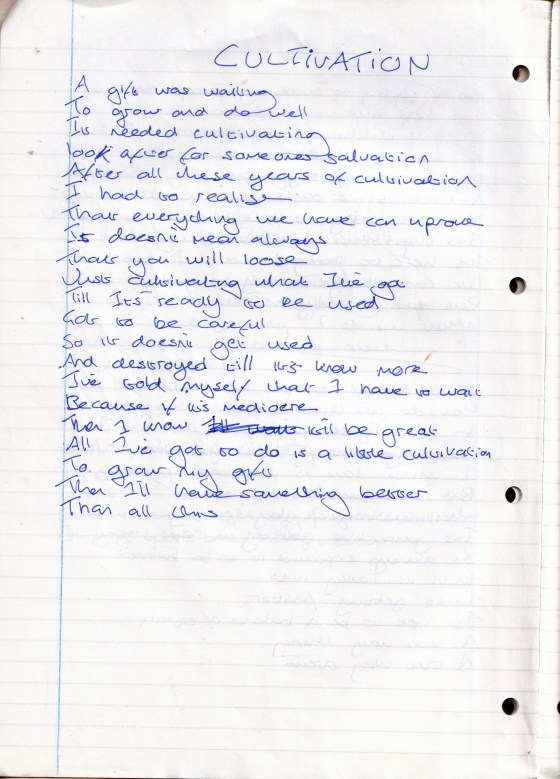 CULTIVATION
A gift was waiting
To grow and do well
It needed cultivating
look after for someones salvation
After all these years of cultivation
I had to realise
That everything we have can uprove
It doesn't mean always
That you will loose
Just cultivating what I've got
Till It's ready to be used
Got to be careful
So it doesn't get used
And destroyed till its know more
I've told myself that I have to wait
Because if its mediocre
Then I know itll be great
All I've got to do is a little cultivation
To grow my gift
Then I'll have something better
Than all this